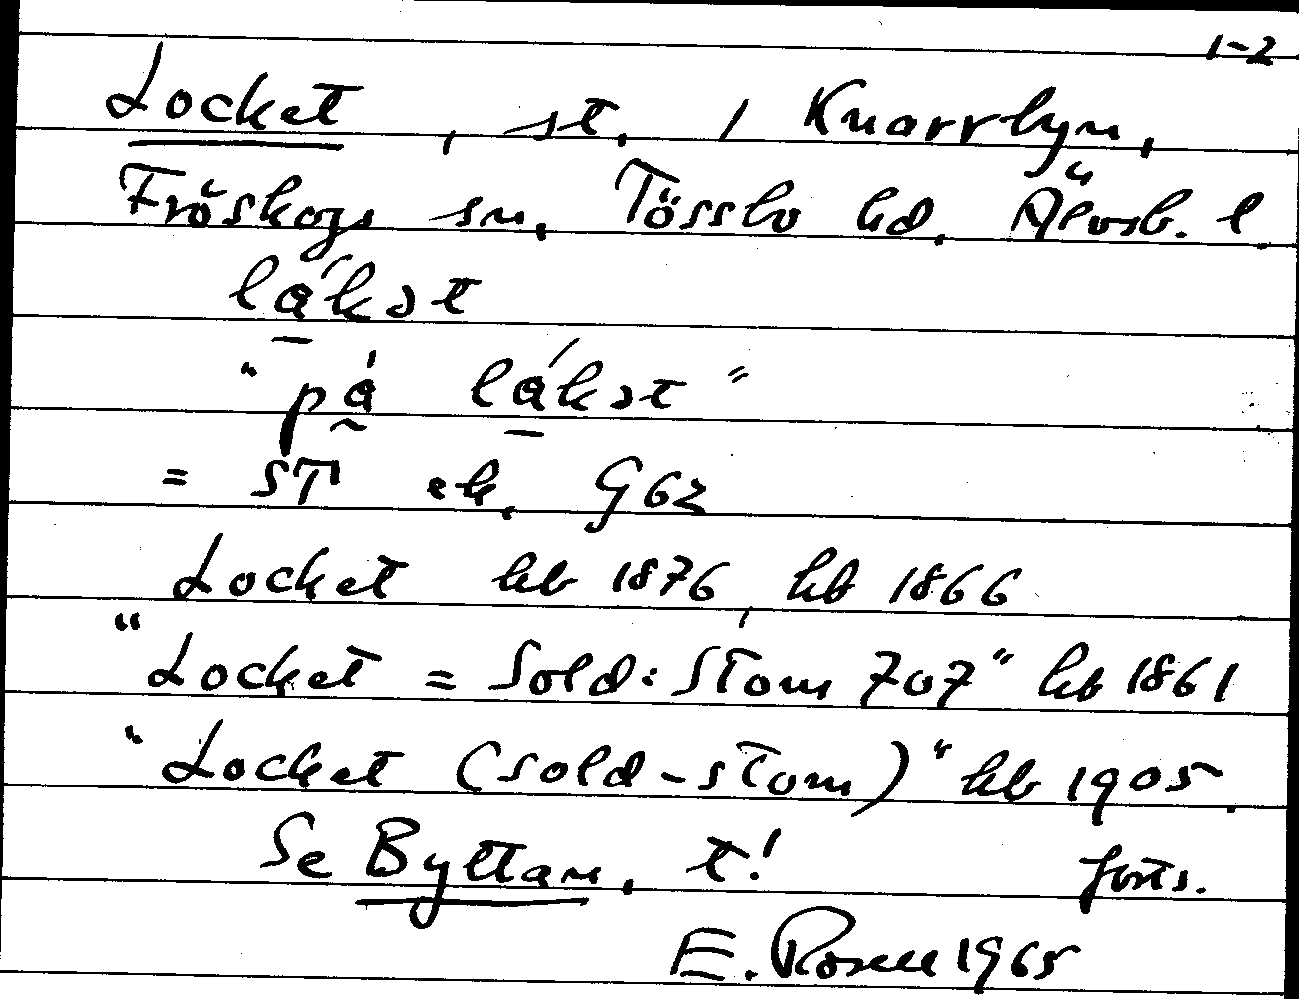 1-2
Locket, st, / Knarrbyn,
Fröskogs sn, Tössbo hd, Älvsb. l.
låkət
"på låkət"
= ST ek. G62
Locket hb 1876, hb 1866
"Locket = Sold: Stom 707" hb 1861
"Locket (sold-stom)" hb 1905.
Se Byttan, t! forts.
E. Rosell 1965